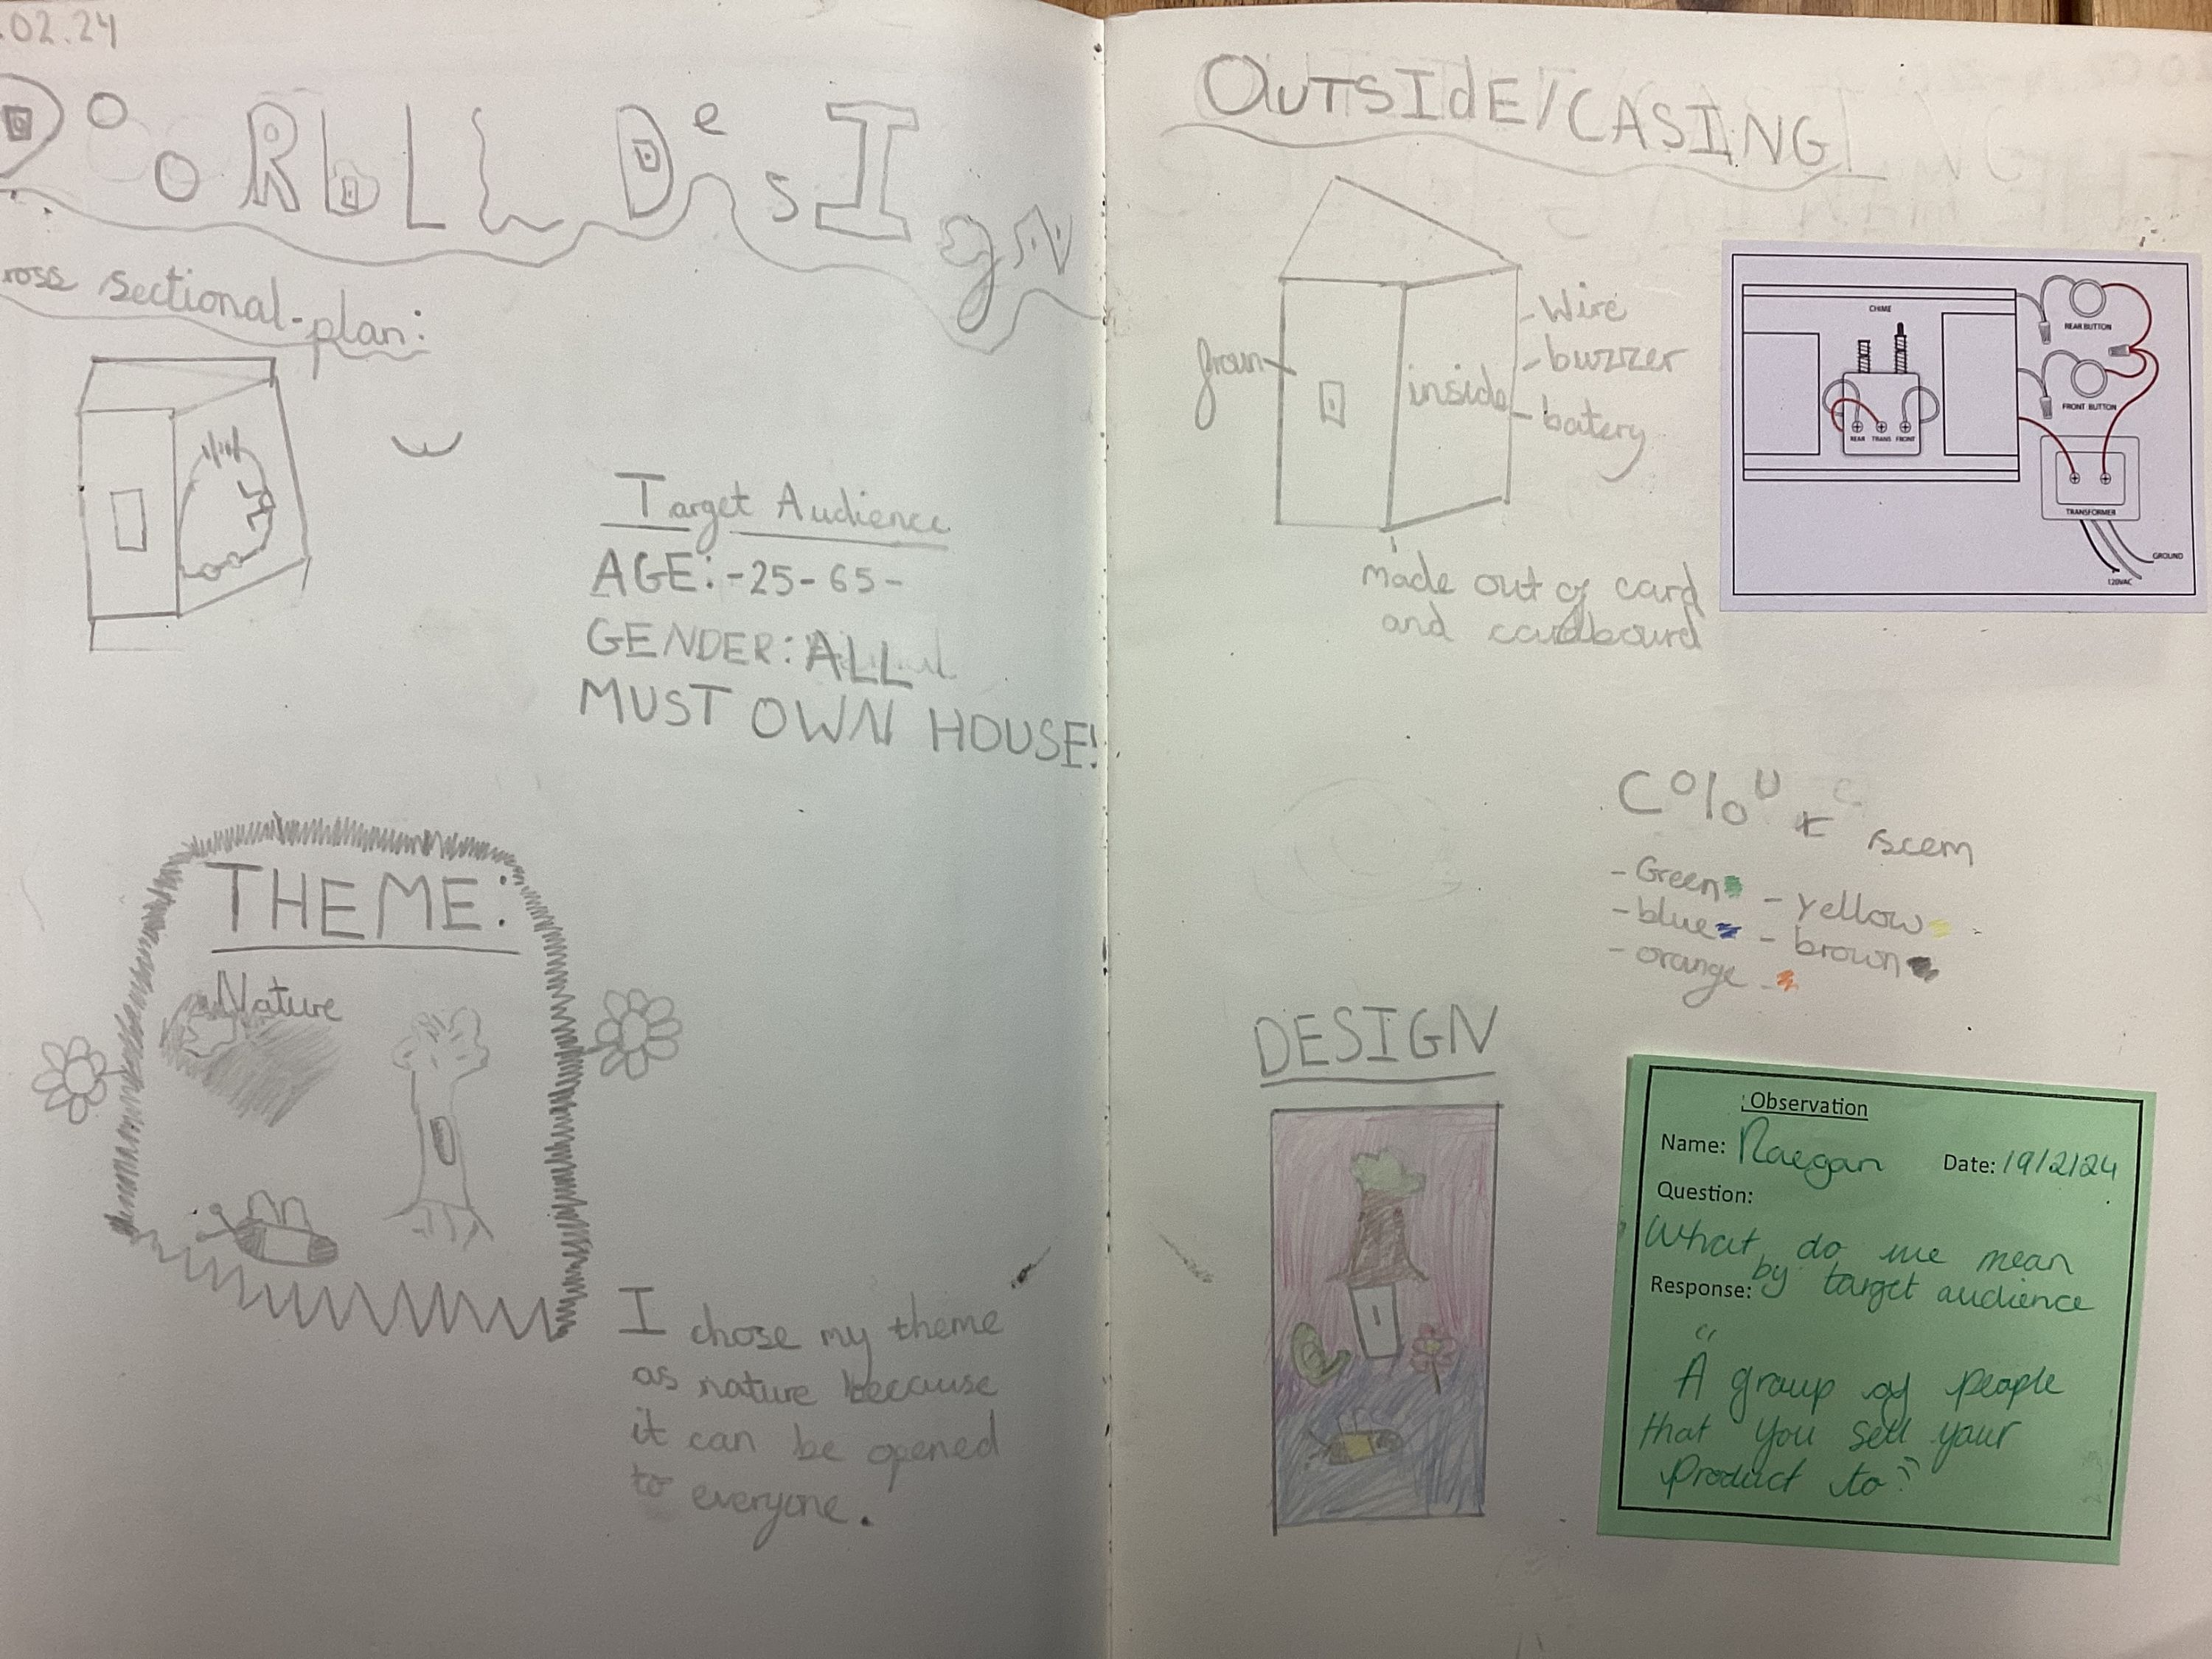 .02.24
DOORbLL DesIgN
ross sectional-plan:
Target Audience
AGE: -25-65-
GENDER: ALL
MUST OWN HOUSE!
THEME:
Nature
I chose my theme
as nature because
it can be opened
to everyone.
OUTSIdE/CASING
Wire
buzzer
inside
batery
made out of card
and cardbourd
CHIME
REAR BUTTON
FRONT BUTTON
REAR TRANS FRONT
TRANSFORMER
GROUND
120VAC
Colour scem
- Green - yellow
- blue - brown
- orange
DESIGN
Observation
Name: Raegan Date: 19/2/24
Question:
What do we mean
by target audience
Response:
"A group of people
that you sell your
product to"